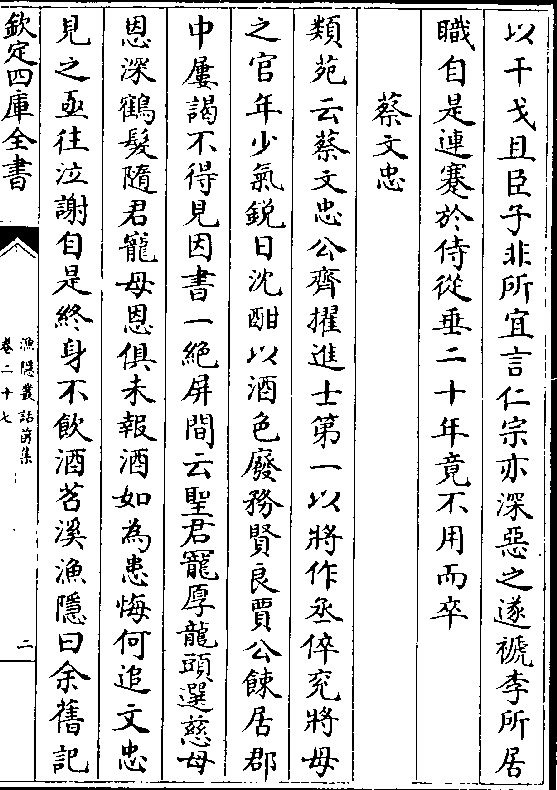 以干戈且臣子非所宜言仁宗亦深惡之遂褫李所居
職自是連蹇於侍從垂二十年竟不用而卒
蔡文忠
類苑云蔡文忠公齊擢進士第一以將作丞倅兖將母
之官年少氣銳日沈酣以酒色廢務賢良賈公餗居郡
中屢謁不得見因書一絶屏間云聖君寵厚龍頭選慈母
恩深鶴髮隨君寵母恩俱未報酒如為患悔何追文忠
見之亟往泣謝自是終身不飲酒苕溪漁隱曰余舊記
欽定四庫全書
漁隱叢話前集
卷二十七
二